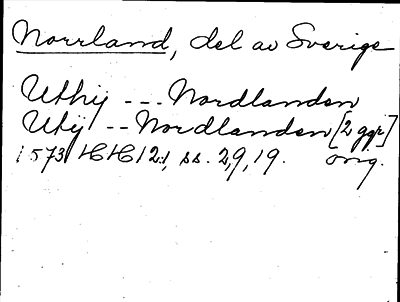 Norrland, del av Sverige
Uthij --- Nordlanden
Utij -- Nordlanden [2 ggr]
1573 HH 12:1, ss. 2,9,19. orig.